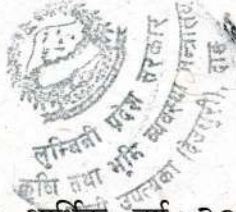 लुम्बिनी प्रदेश सरकार
कृषि तथा भूमि व्यवस्था मन्त्रालय
उपत्यका (देउखुरी), दाङ
आर्थिक वर्ष २०